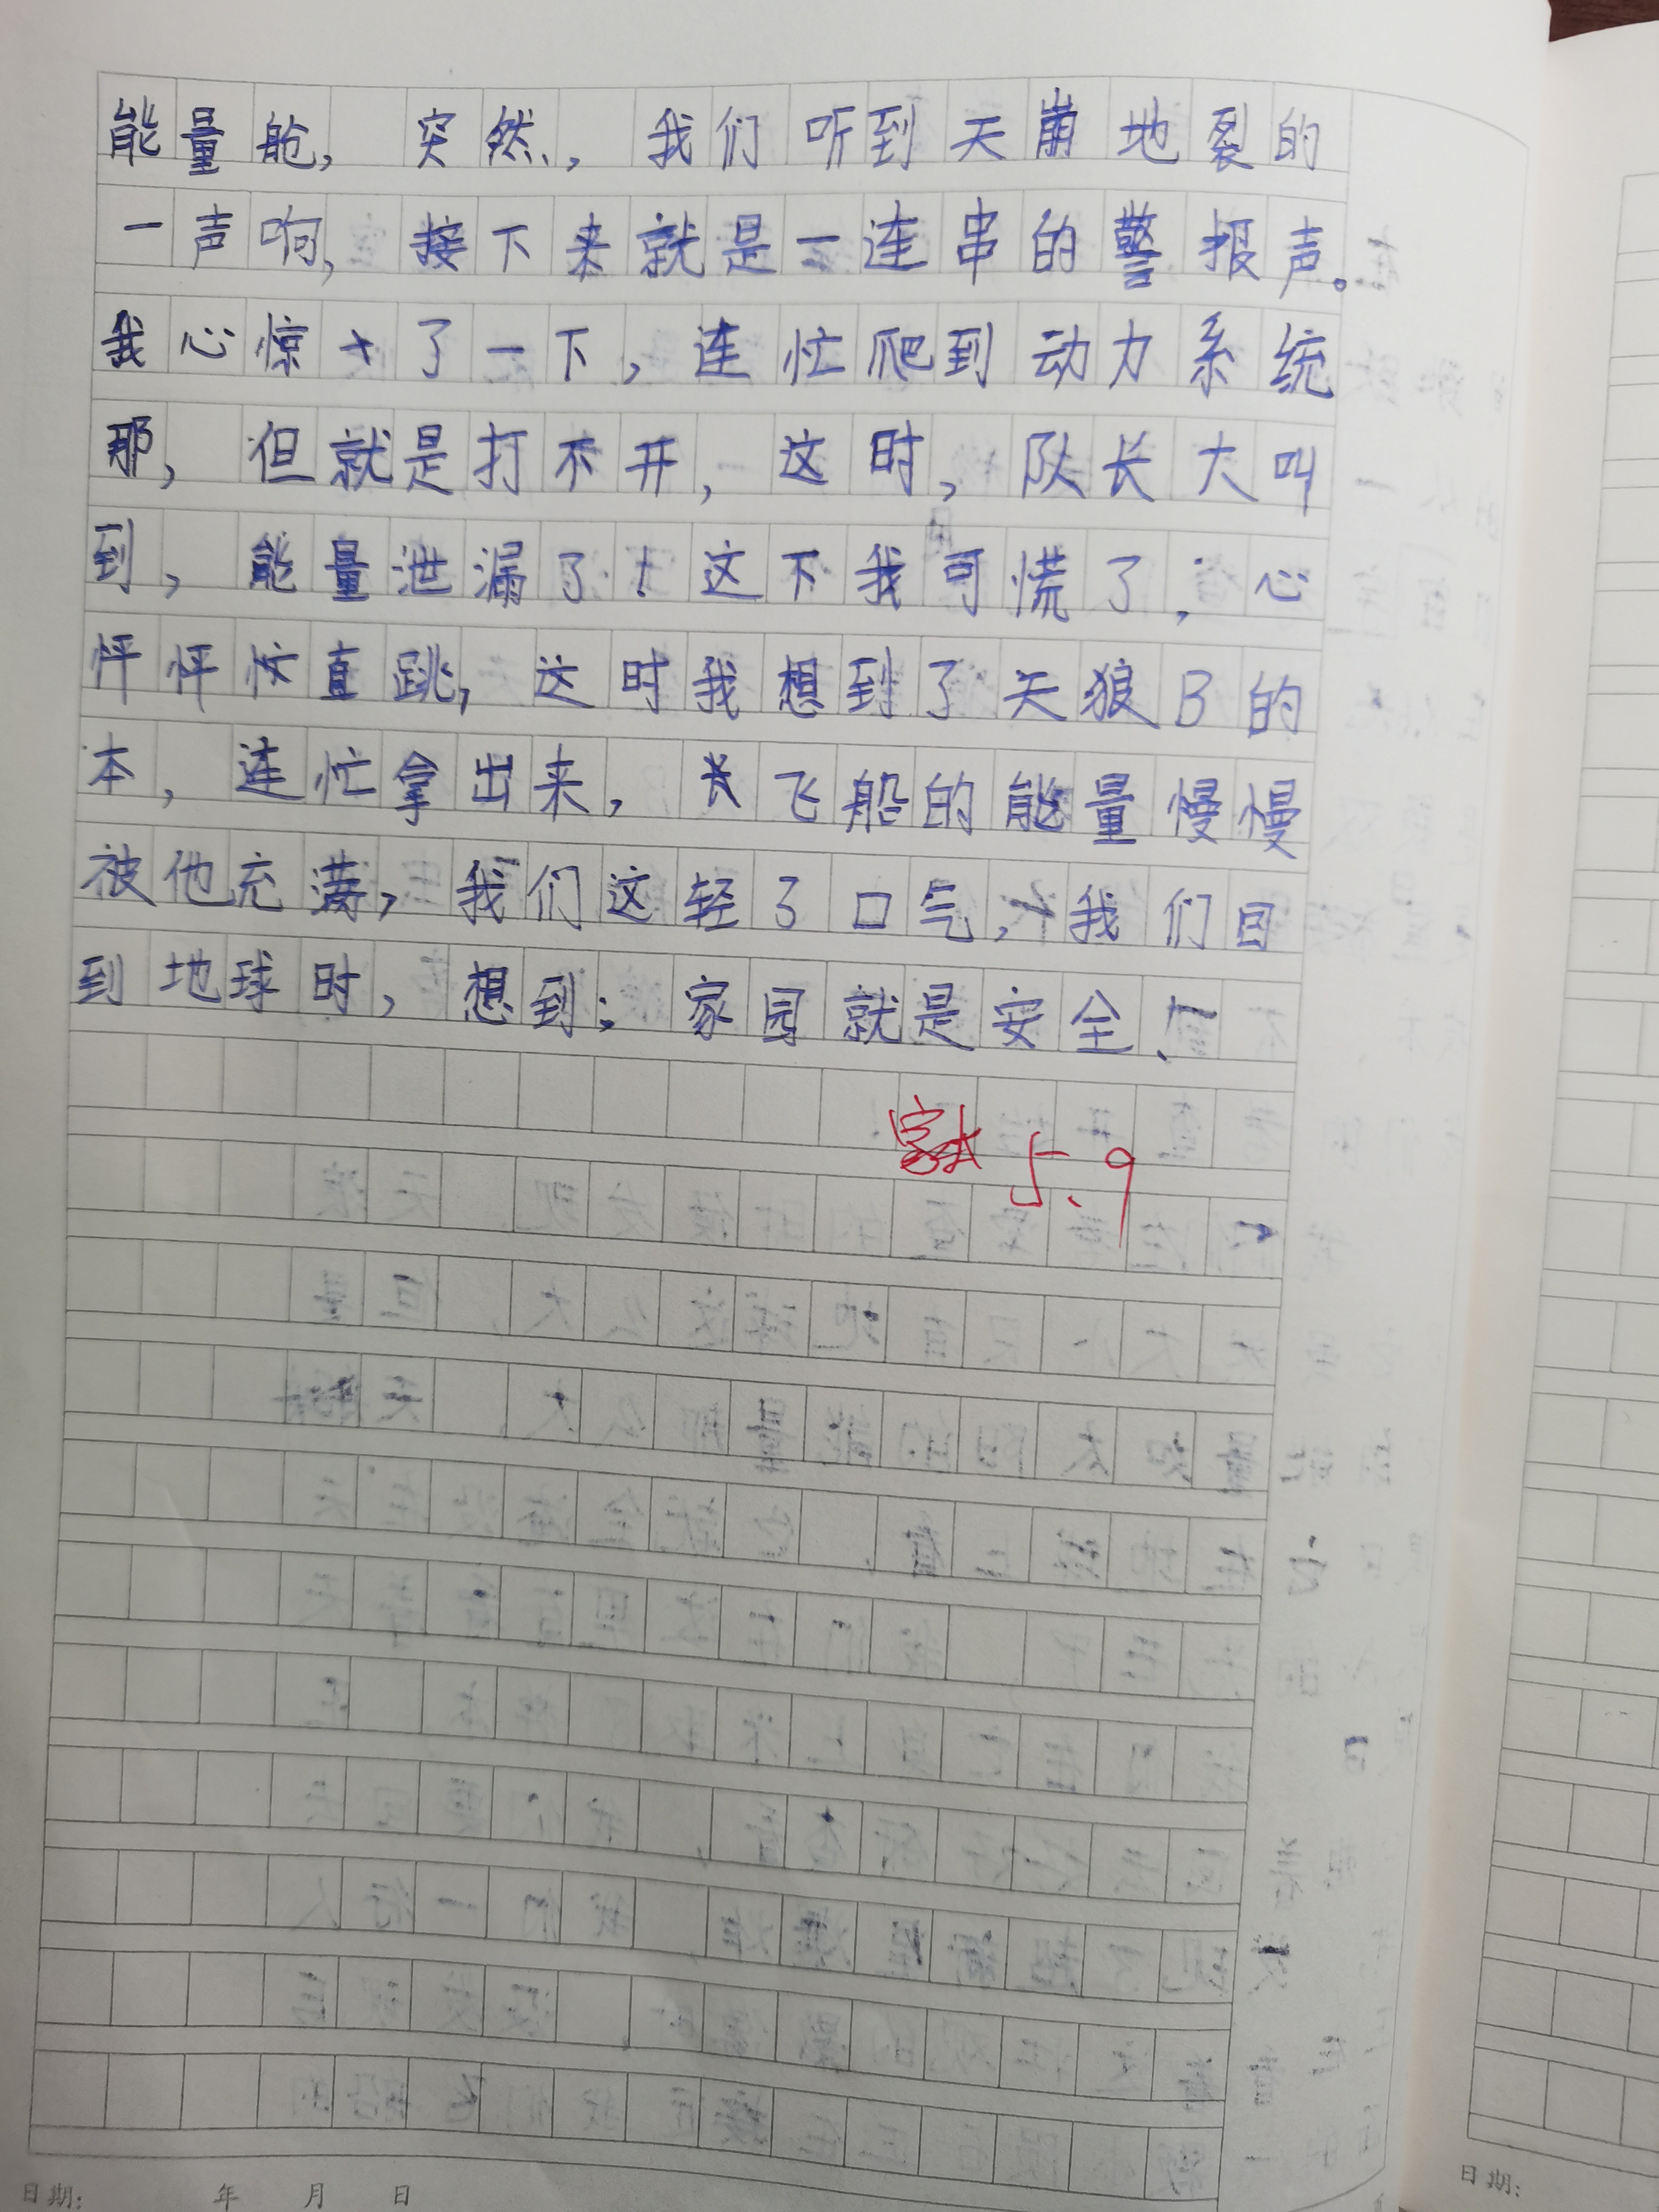 能量舱，突然，我们听到天崩地裂的
一声响，接下来就是一连串的警报声。
我心惊了一下，连忙爬到动力系统
那，但就是打不开，这时，队长大叫
到，能量泄漏了！这下我可慌了，心
怦怦直跳，这时我想到了天狼B的
本，连忙拿出来，飞船的能量慢慢
被他充满，我们这轻了口气，我们回
到地球时，想到：家园就是安全！
5.9
日期： 年 月 日
日期：